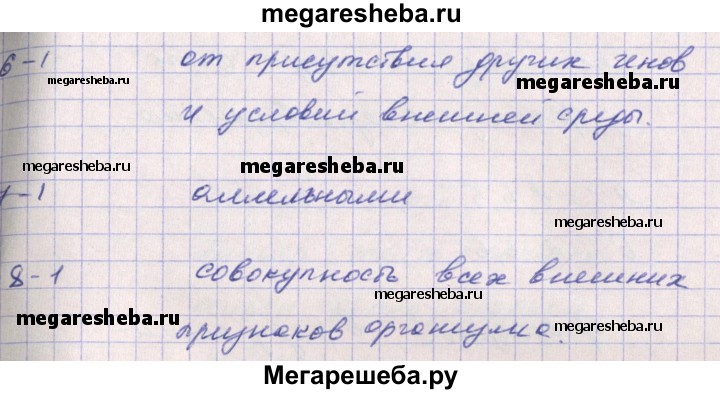 megaresheba.ru
6-1 от присутствия других генов
megaresheba.ru megaresheba.ru
и условий внешней среды.
megaresheba.ru megaresheba.ru
7-1 аллельными
megaresheba.ru
8-1 совокупность всех внешних
megaresheba.ru
megaresheba.ru megaresheba.ru
признаков организма.
Мегарешеба.ру